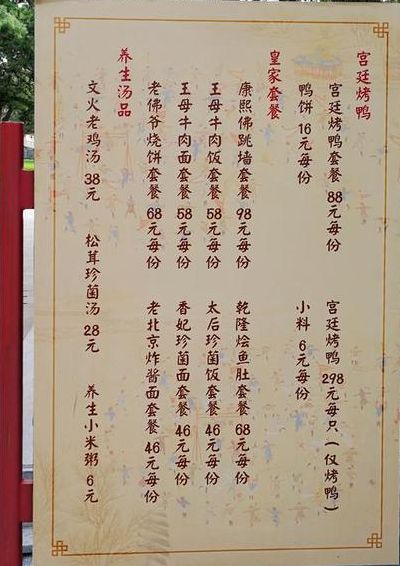 宫廷烤鸭
宫廷烤鸭套餐 88元每份
宫廷烤鸭 298元每只(仅烤鸭)
鸭饼 16元每份
小料 6元每份
皇家套餐
康熙佛跳墙套餐 98元每份
乾隆烩鱼肚套餐 68元每份
王母牛肉饭套餐 58元每份
太后珍菌饭套餐 46元每份
王母牛肉面套餐 58元每份
香妃珍菌面套餐 46元每份
老佛爷烧饼套餐 68元每份
老北京炸酱面套餐 46元每份
养生汤品
文火老鸡汤 38元
松茸珍菌汤 28元
养生小米粥 6元